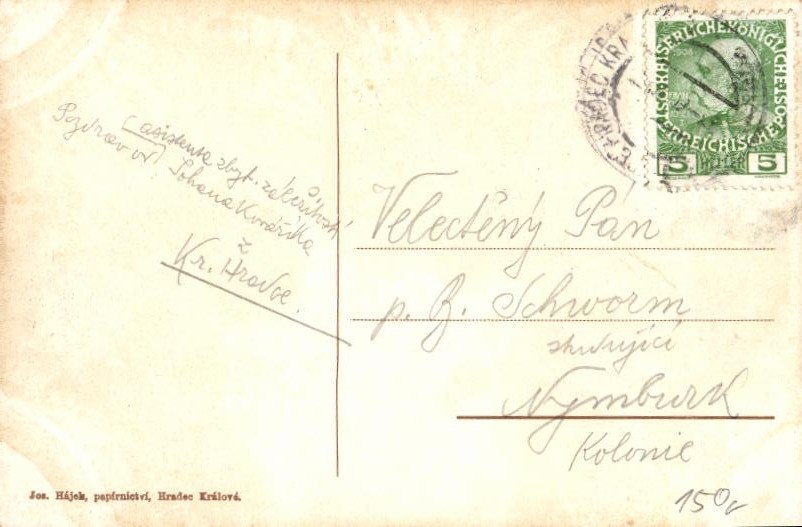 Pozdrav od
asistenta zbyt. záležitostí
Johana Kovaříka
z
Kr. Hradce.
HRADEC KRÁ
K.K. ÖSTERREICHISCHE POST
KAISERLICHE KÖNIGLICHE
1908
5 HELLER 5
Velectěný Pan
p. B. Schworm
studující
Nymburk
Kolonie
Jos. Hájek, papírnictví, Hradec Králové.
150,-